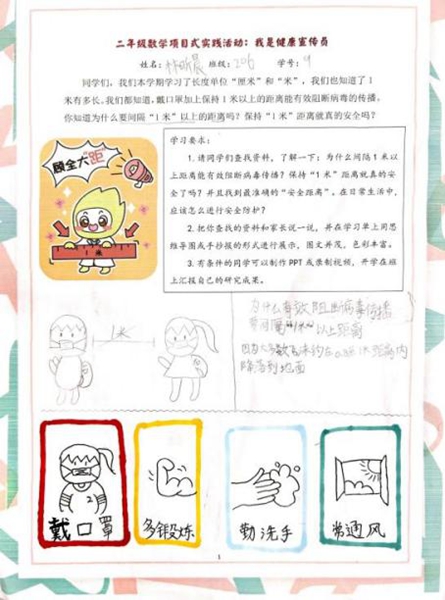 二年级数学项目式实践活动：我是健康宣传员
姓名：林欣晨 班级：206 学号：9
同学们，我们本学期学习了长度单位“厘米”和“米”，我们也知道了1
米有多长。我们都知道，戴口罩加上保持1米以上的距离能有效阻断病毒的传播。
你知道为什么要间隔“1米”以上的距离吗？保持“1米”距离就真的安全吗？
顾全大距
1米
学习要求：
1.请同学们查找资料，了解一下：为什么间隔1米以
上距离能有效阻断病毒传播？保持“1米”距离就真的安
全了吗？并且找到最准确的“安全距离”。在日常生活中，
应该怎么进行安全防护？
2.把你查找的资料和家长说一说，并在学习单上用思
维导图或手抄报的形式进行展示，图文并茂，色彩丰富。
3.有条件的同学可以制作PPT或录制视频，开学在班
上汇报自己的研究成果。
1米
为什么有效阻断病毒传播
要间隔“1米”以上距离
因为大多数飞沫约在 米距离内
降落到地面
戴口罩
多锻炼
勤洗手
常通风
1